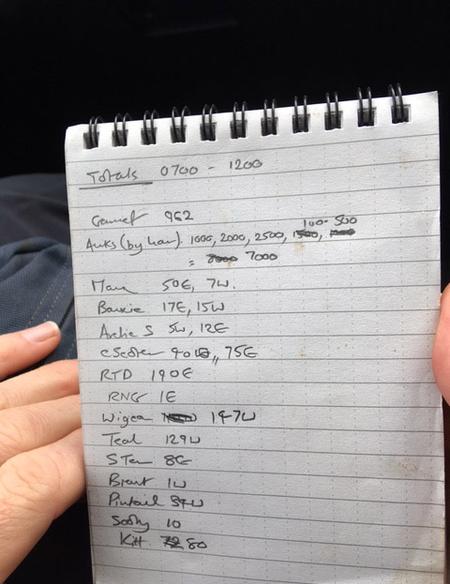 Totals 0700 - 1200
Gannet 962
100- 500
Auks (by hour). 1000, 2000, 2500,
= 7000
Manx 50E, 7W.
Bonxie 17E, 15W
Arctic S 5W, 12E
C Scoter 90W, 75E
RTD 190E
RNG 1E
Wigeon 147W
Teal 129W
S Tern 8E
Brent 1W
Pintail 34W
Sooty 10
Kitt 80